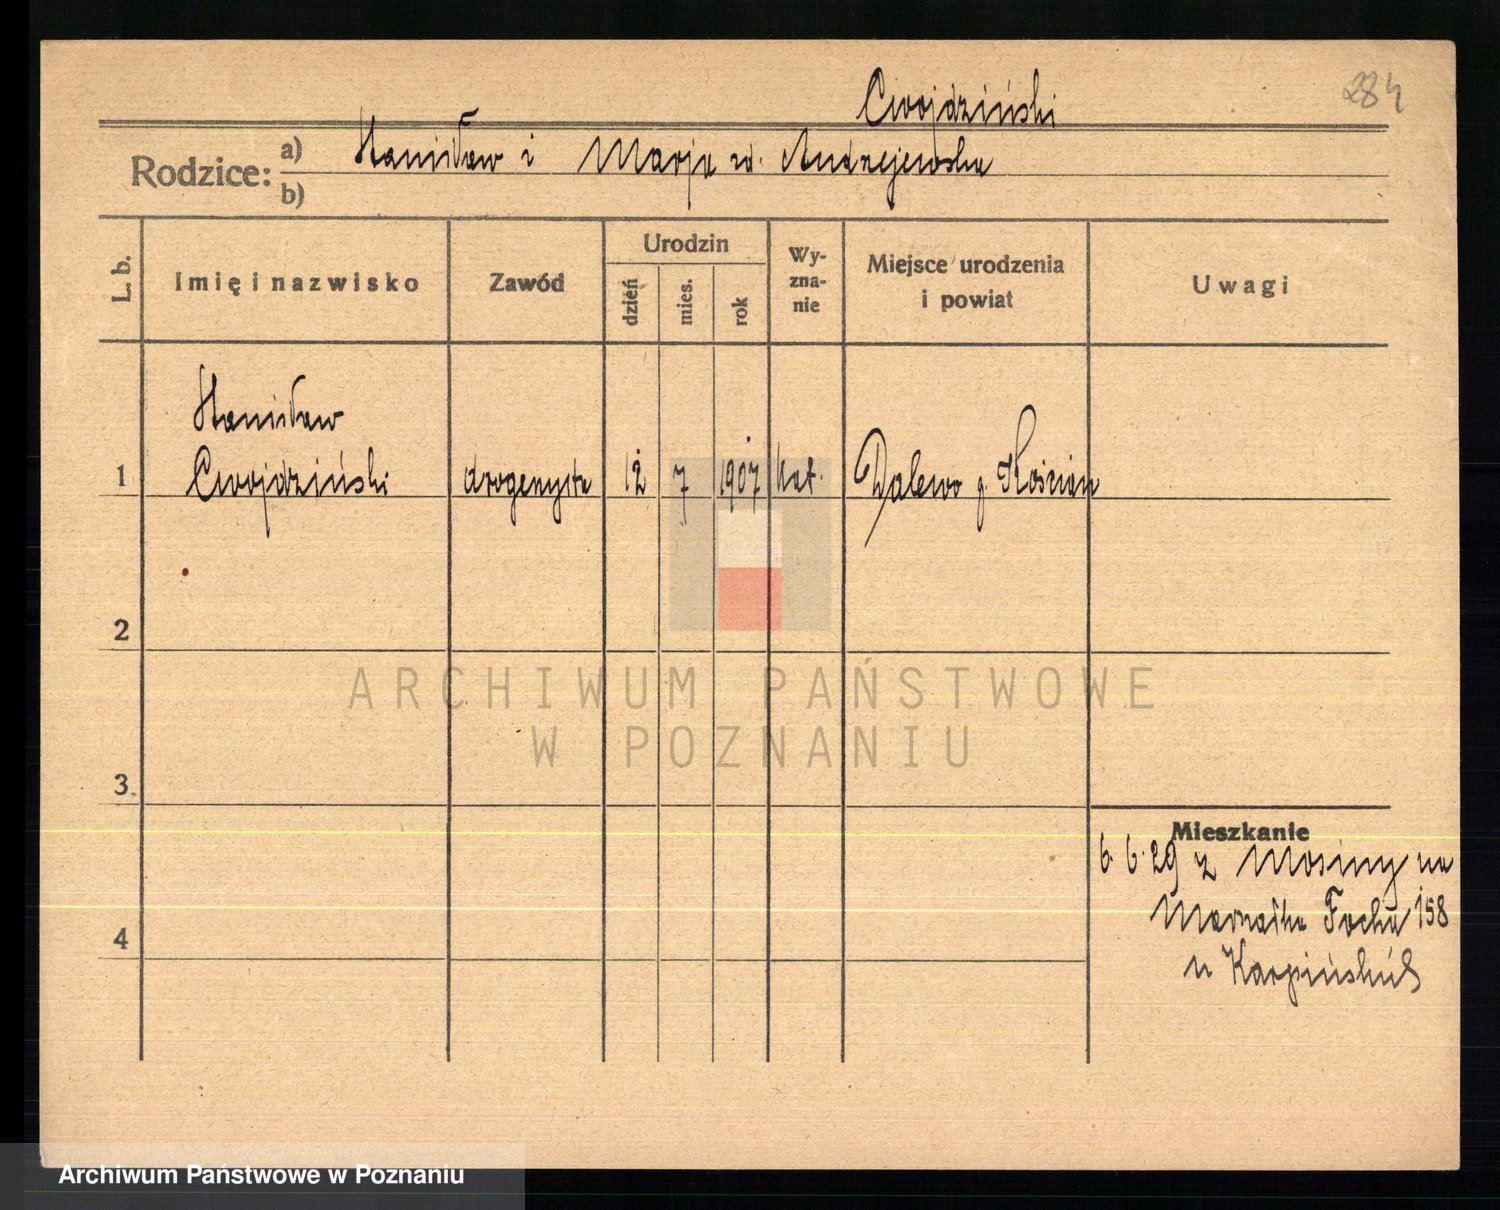 Cwojdziński
284
Rodzice: a) Stanisław i Marja zd. Andrzejewska
b)
L. b.
Imię i nazwisko
Zawód
Urodzin
dzień
mies.
rok
Wy-
zna-
nie
Miejsce urodzenia
i powiat
Uwagi
Stanisław
1 Cwojdziński drogerzysta 12 7 1907 kat. Dalewo p Kościan
2
ARCHIWUM PAŃSTWOWE
W POZNANIU
3
Mieszkanie
6. 6. 29 z Mosiny na
Marszałka Focha 158
4
u Karpińskich
Archiwum Państwowe w Poznaniu